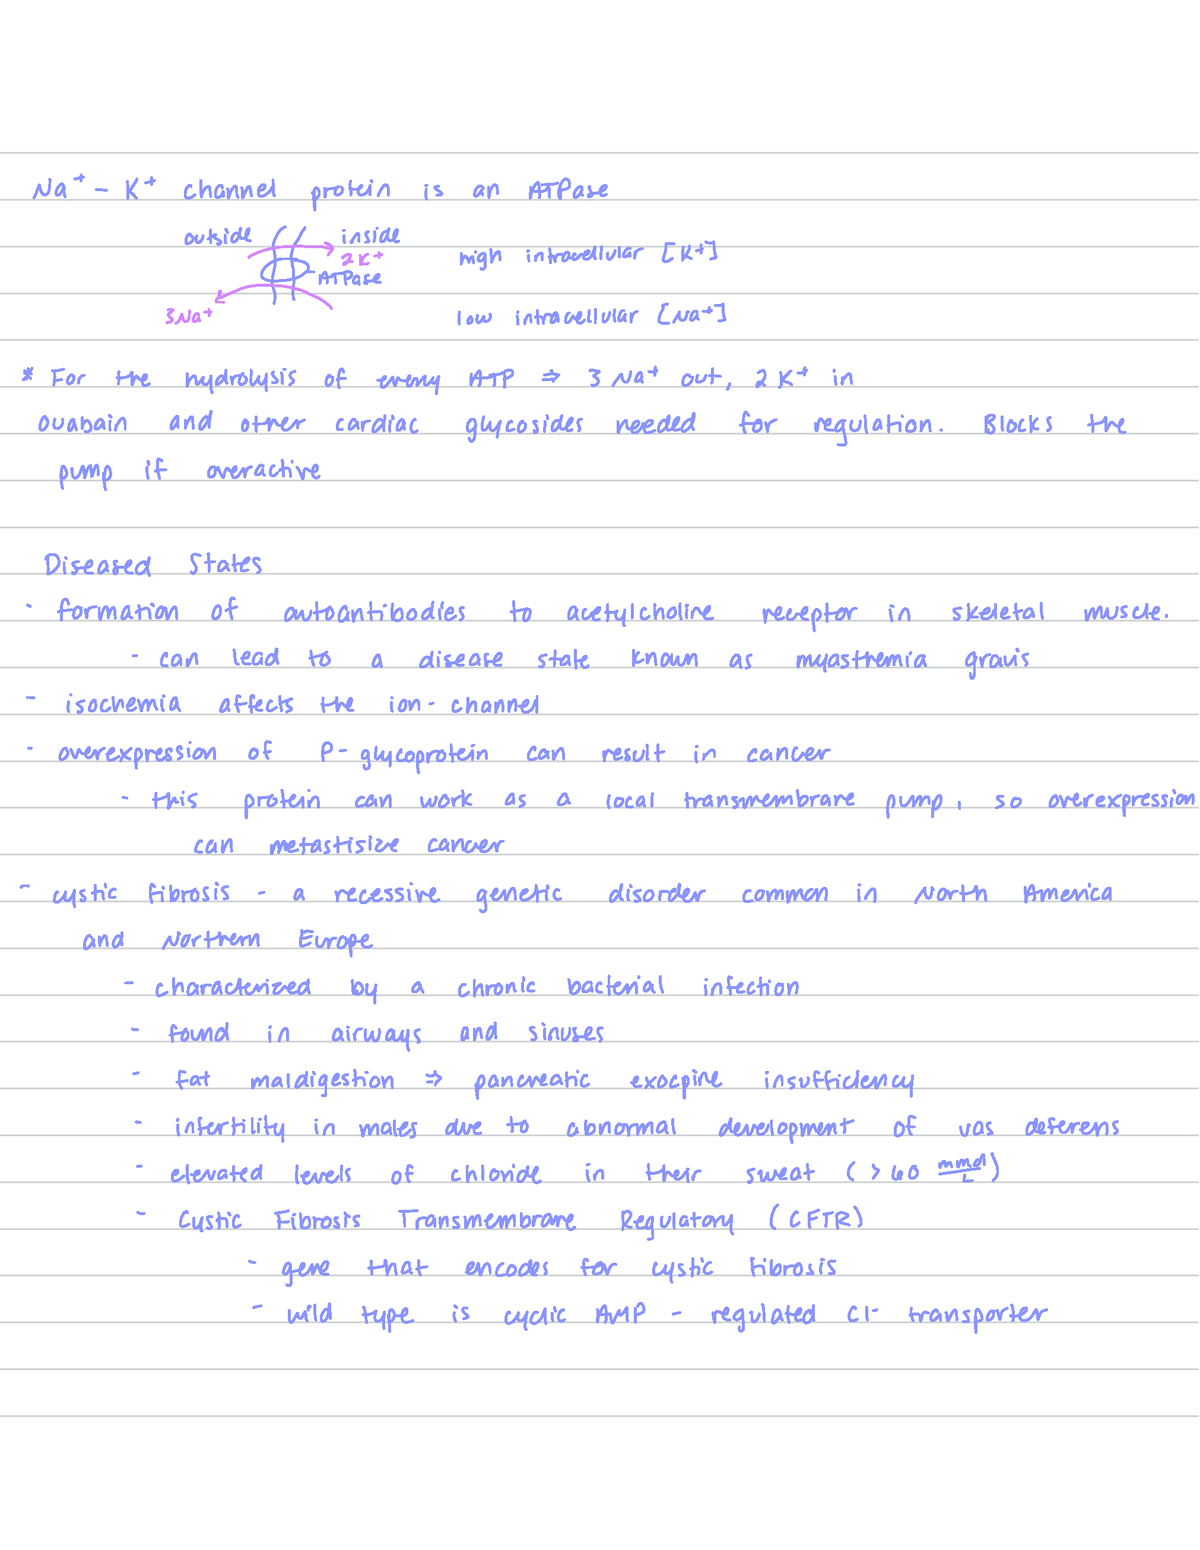 Na⁺ - K⁺ channel protein is an ATPase
outside inside
2K⁺
ATPase
3Na⁺
high intracellular [K⁺]
low intracellular [Na⁺]
* For the hydrolysis of every ATP ⇒ 3 Na⁺ out, 2 K⁺ in
ouabain and other cardiac glycosides needed for regulation. Blocks the
pump if overactive
Diseased States
- formation of autoantibodies to acetylcholine receptor in skeletal muscle.
- can lead to a disease state known as myasthemia gravis
- isochemia affects the ion-channel
- overexpression of P-glycoprotein can result in cancer
- this protein can work as a local transmembrane pump, so overexpression
can metastisize cancer
- cystic fibrosis - a recessive genetic disorder common in North America
and Northern Europe
- characterized by a chronic bacterial infection
- found in airways and sinuses
- fat maldigestion ⇒ pancreatic exocpine insufficiency
- infertility in males due to abnormal development of vas deferens
- elevated levels of chloride in their sweat (>60 mmol/L)
- Cystic Fibrosis Transmembrane Regulatory (CFTR)
- gene that encodes for cystic fibrosis
- wild type is cyclic AMP - regulated Cl- transporter